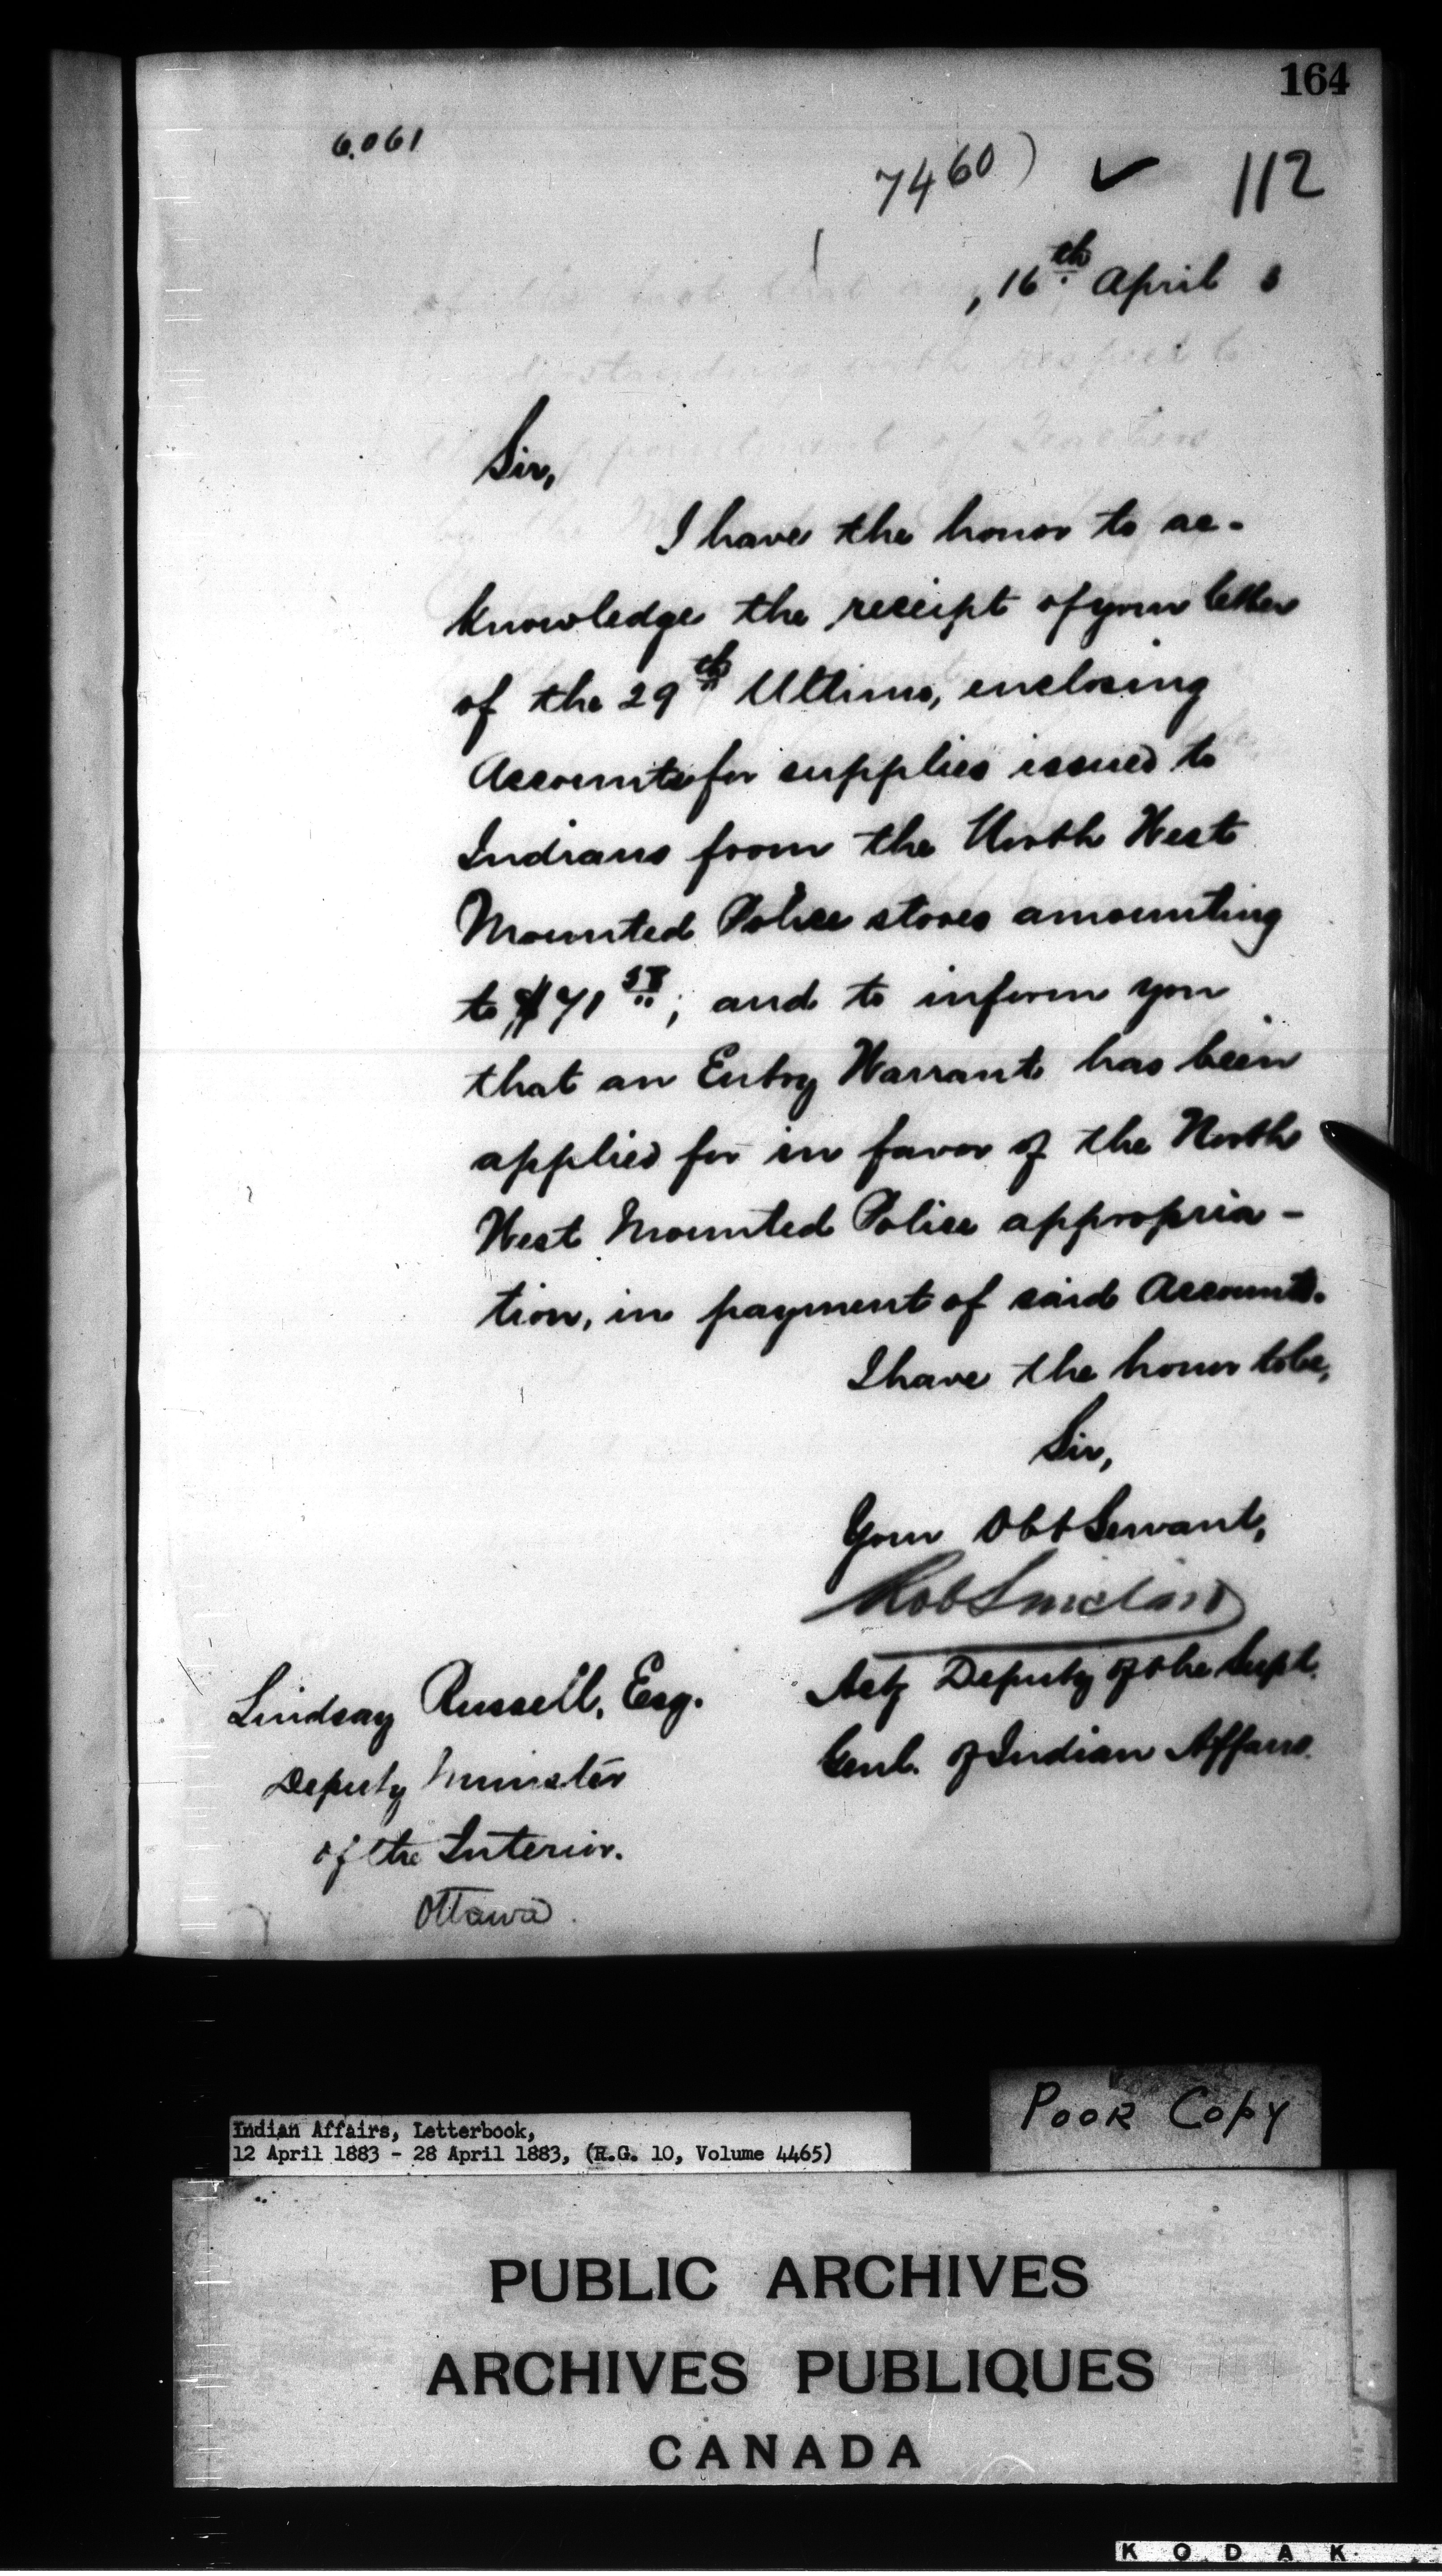 164
6.061
7460) ✓ 112
, 16th April 3
Sir,
I have the honor to ac-
knowledge the receipt of your letter
of the 29th Ultimo, enclosing
Accounts for supplies issued to
Indians from the North West
Mounted Police stores amounting
to $71 ; and to inform you
that an Entry Warrant has been
applied for in favor of the North
West Mounted Police appropria-
tion, in payment of said Accounts.
I have the honor to be,
Sir,
Your Obt Servant,
Rob Sinclair
Actg Deputy of the Supt.
Genl. of Indian Affairs.
Lindsay Russell, Esq.
Deputy Minister
of the Interior.
Ottawa.
POOR COPY
Indian Affairs, Letterbook,
12 April 1883 - 28 April 1883, (R.G. 10, Volume 4465)
PUBLIC ARCHIVES
ARCHIVES PUBLIQUES
CANADA
KODAK